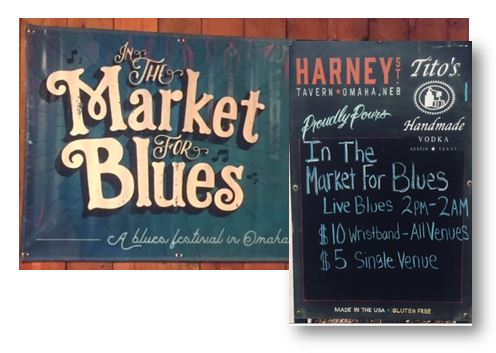 IN
THE
Market
FOR
Blues
A blues festival in Omaha
HARNEY ST.
TAVERN ★ OMAHA, NEB
Proudly Pours
Tito's
Handmade
VODKA
AUSTIN ★ TEXAS
In The
Market For Blues
Live Blues 2PM-2AM
$10 Wristband - All Venues
$5 Single Venue
MADE IN THE USA - GLUTEN FREE